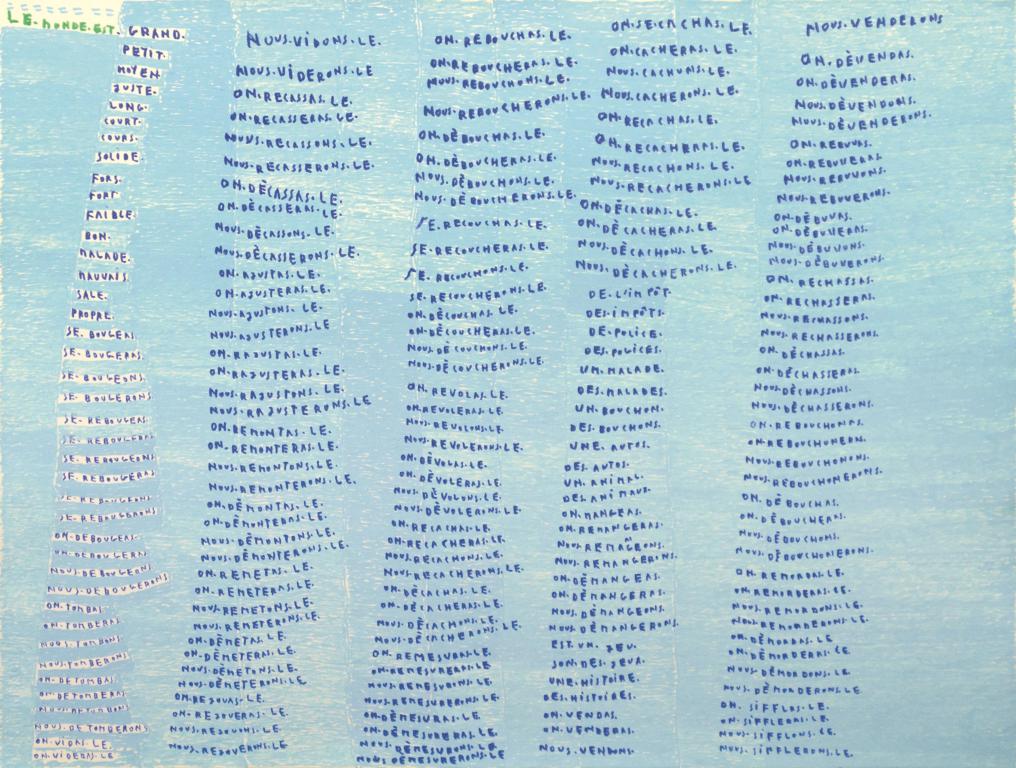 LE.MONDE.EST. GRAND.
PETIT.
MOYEN
JUSTE.
LONG.
COURT.
COURS.
SOLIDE.
FORS.
FORT
FAIBLE.
BON.
MALADE.
MAUVAIS.
SALE.
PROPRE.
SE.BOUGEAS.
SE.BOUGERAS.
SE.BOUGEONS.
SE.BOUGERONS
SE.REBOUGEAS.
SE.REBOUGERAS
SE.REBOUGEONS
SE.REBOUGERAS
SE.REBOUGEONS
SE.REBOUGERONS
ON.DÈBOUGEAS.
ON.DÈBOUGERAS
NOUS.DÈBOUGEONS
NOUS.DÈBOUGERONS
ON.TOMBAS.
ON.TOMBERAS
NOUS.TOMBONS.
NOUS.TOMBERONS
ON.DETOMBAS.
ON.DETOMBERAS
NOUS.DETOMBONS
NOUS.DETOMBERONS
ON.VIDAS.LE.
ON.VIDERAS.LE.
NOUS.VIDONS.LE.
NOUS.VIDERONS.LE
ON.RECASSAS.LE.
ON.RECASSERAS.LE.
NOUS.RECASSONS.LE.
NOUS.RECASSERONS.LE.
ON.DÈCASSAS.LE.
ON.DÈCASSERAS.LE.
NOUS.DÈCASSONS.LE.
NOUS.DÈCASSERONS.LE.
ON.AJUSTAS.LE.
ON.AJUSTERAS.LE.
NOUS.AJUSTONS.LE.
NOUS.AJUSTERONS.LE
ON.RAJUSTAS.LE.
ON.RAJUSTERAS.LE.
NOUS.RAJUSTONS.LE.
NOUS.RAJUSTERONS.LE
ON.REMONTAS.LE.
ON.REMONTERAS.LE.
NOUS.REMONTONS.LE.
NOUS.REMONTERONS.LE.
ON.DÈMONTAS.LE.
ON.DÈMONTERAS.LE.
NOUS.DÈMONTONS.LE.
NOUS.DÈMONTERONS.LE.
ON.REMETAS.LE.
ON.REMETERAS.LE.
NOUS.REMETONS.LE.
NOUS.REMETERONS.LE.
ON.DÈMETAS.LE.
ON.DÈMETERAS.LE.
NOUS.DÈMETONS.LE.
NOUS.DÈMETERONS.LE
ON.REJOUAS.LE.
ON.REJOUERAS.LE.
NOUS.REJOUONS.LE.
NOUS.REJOUERONS.LE
ON.REBOUCHAS.LE.
ON.REBOUCHERAS.LE.
NOUS.REBOUCHONS.LE.
NOUS.REBOUCHERONS.LE.
ON.DÈBOUCHAS.LE.
ON.DÈBOUCHERAS.LE.
NOUS.DÈBOUCHONS.LE.
NOUS.DÈBOUCHERONS.LE.
SE.RECOUCHAS.LE.
SE.RECOUCHERAS.LE.
SE.RECOUCHONS.LE.
SE.RECOUCHERONS.LE.
ON.DÈCOUCHAS.LE.
ON.DÈCOUCHERAS.LE.
NOUS.DÈCOUCHONS.LE.
NOUS.DÈCOUCHERONS.LE.
ON.REVOLAS.LE.
ON.REVOLERAS.LE.
NOUS.REVOLONS.LE.
NOUS.REVOLERONS.LE.
ON.DÈVOLAS.LE.
ON.DÈVOLERAS.LE.
NOUS.DÈVOLONS.LE.
NOUS.DÈVOLERONS.LE.
ON.RECACHAS.LE.
ON.RECACHERAS.LE.
NOUS.RECACHONS.LE.
NOUS.RECACHERONS.LE.
ON.DÈCACHAS.LE.
ON.DÈCACHERAS.LE.
NOUS.DÈCACHONS.LE.
NOUS.DÈCACHERONS.LE.
ON.REMESURAS.LE.
ON.REMESURERAS.LE.
NOUS.REMESURONS.LE.
NOUS.REMESURERONS.LE.
ON.DÈMESURAS.LE.
ON.DÈMESURERAS.LE.
NOUS.DÈMESURONS.LE.
NOUS.DÈMESURERONS.LE
ON.SE.CACHAS.LE.
ON.CACHERAS.LE.
NOUS.CACHONS.LE.
NOUS.CACHERONS.LE.
ON.RECACHAS.LE.
ON.RECACHERAS.LE.
NOUS.RECACHONS.LE.
NOUS.RECACHERONS.LE
ON.DÈCACHAS.LE.
ON.DÈCACHERAS.LE.
NOUS.DÈCACHONS.LE.
NOUS.DÈCACHERONS.LE.
DE.L'IMPÔT.
DES.IMPÔTS.
DE.POLICE.
DES.POLICES.
UN.MALADE.
DES.MALADES.
UN.BOUCHON.
DES.BOUCHONS.
UNE.AUTOS.
DES.AUTOS.
UN.ANIMAL.
DES.ANIMAUX.
ON.MANGEAS.
ON.REMANGERAS.
NOUS.REMAGERONS.
NOUS.REMANGERONS.
ON.DÈMANGEAS.
ON.DÈMANGERAS.
NOUS.DÈMANGEONS.
NOUS.DÈMANGERONS.
EST.UN.JEU.
SON.DES.JEUX.
UNE.HISTOIRE.
DES.HISTOIRES.
ON.VENDAS.
ON.VENDERAS.
NOUS.VENDONS.
NOUS.VENDERONS
ON.DÈVENDAS.
ON.DÈVENDERAS.
NOUS.DÈVENDONS.
NOUS.DÈVENDERONS.
ON.REBUVAS.
ON.REBUVERAS.
NOUS.REBUVONS.
NOUS.REBUVERONS.
ON.DÈBUVAS.
ON.DÈBUVERAS.
NOUS.DÈBUVONS.
NOUS.DÈBUVERONS.
ON.RECHASSAS.
ON.RECHASSERAS.
NOUS.RECHASSONS.
NOUS.RECHASSERONS.
ON.DÈCHASSAS.
ON.DÈCHASSERAS.
NOUS.DÈCHASSONS.
NOUS.DÈCHASSERONS.
ON.REBOUCHONAS.
ON.REBOUCHONERAS.
NOUS.REBOUCHONONS.
NOUS.REBOUCHONERONS.
ON.DÈBOUCHAS.
ON.DÈBOUCHERAS.
NOUS.DÈBOUCHONS.
NOUS.DÈBOUCHONERONS.
ON.REMORDAS.LE.
ON.REMORDERAS.LE.
NOUS.REMORDONS.LE.
NOUS.REMORDERONS.LE.
ON.DÈMORDAS.LE
ON.DÈMORDERAS.LE
NOUS.DÈMORDONS.LE.
NOUS.DÈMORDERONS.LE.
ON.SIFFLAS.LE.
ON.SIFFLERAS.LE.
NOUS.SIFFLONS.LE.
NOUS.SIFFLERONS.LE.